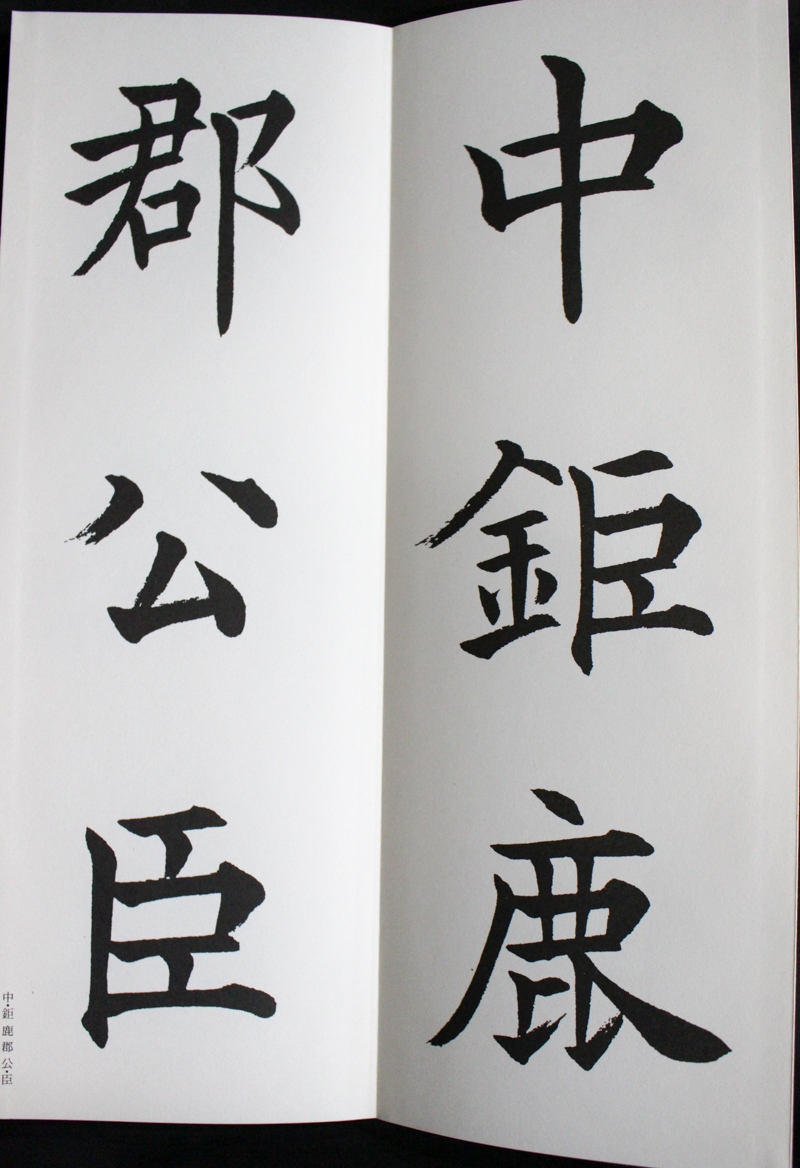 中鉅鹿
郡公臣
中・鉅鹿郡公・臣